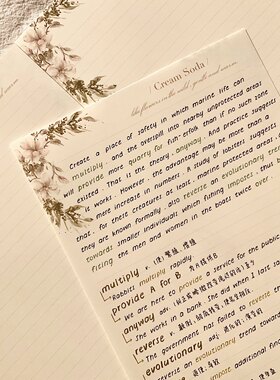 Cream Soda
like flowers in the wild, gentle and warm
Create a place of safety in which marine life can
multiply, and the overspill into nearby unprotected areas
will provide more quarry for fish than if no such zone
existed. That is the theory anyway. And practice suggests
it works. However, the advantage may be more than a
mere increase in numbers. A study of lobsters suggests
that, for these creatures at least, marine protected areas, as
they are known formally, also reverse an evolutionary trend
towards smaller individuals which fishing imposes, thus
fitting the men and women in the boats twice over.
multiply v. (使)繁殖,增殖
Rabbits multiply rapidly.
provide A for B 为B提供A
We are here to provide a service for the public
anyway adv.
She works in a bank. She did when I
reverse v.
The government has failed to reverse
evolutionary adj.
reverse an evolutionary trend toward